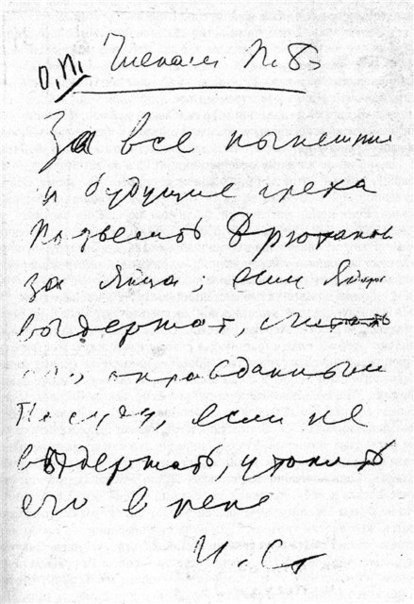 О.П. Членам П.Б.
За все нынешние
и будущие греха
подвесить Брюханов
за яйца; если яйца
выдержат, считать
его оправданным
по суду, если не
выдержат, утопить
его в реке
И. Ст